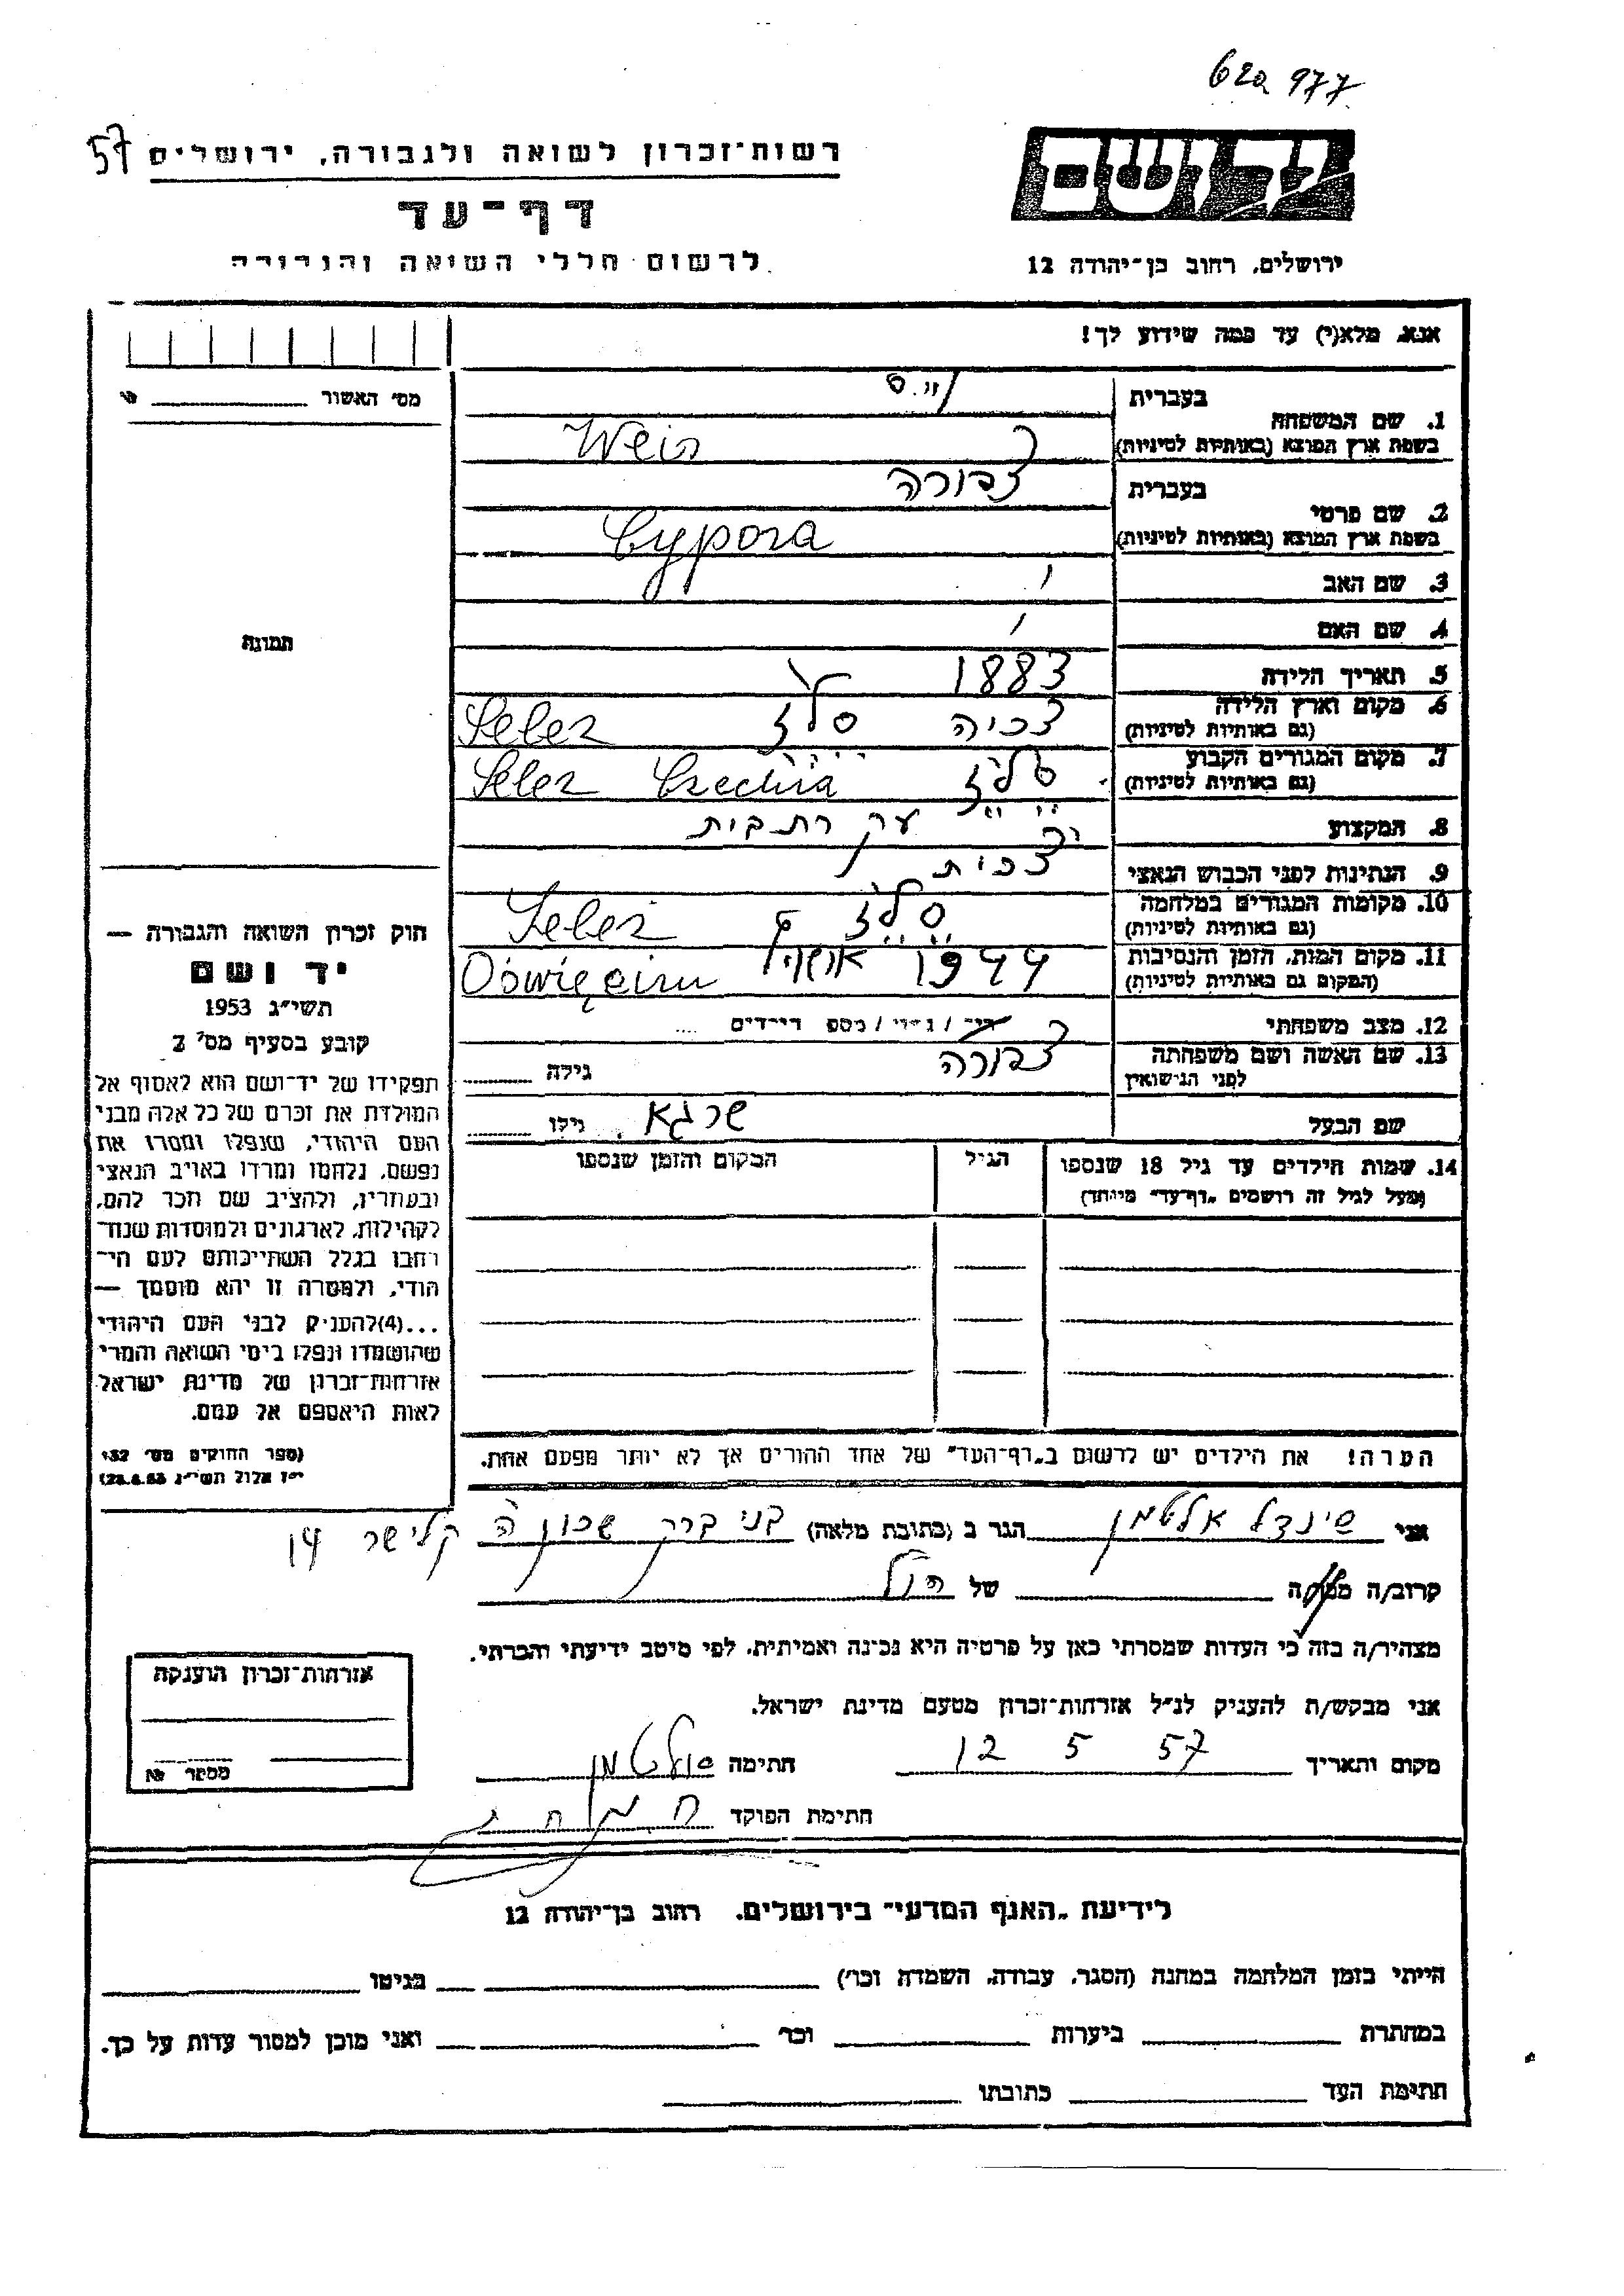 620 977
57
רשות־זכרון לשואה ולגבורה, ירושלים
יד ושם
דף־עד
לרשום חללי השואה והגבורה
ירושלים, רחוב בן־יהודה 12
אנא, מלא(י) עד כמה שידוע לך!
מס' האשור
1. שם המשפחה בעברית וייס
בשפת ארץ המוצא (באותיות לטיניות) Weis
2. שם פרטי בעברית צפורה
בשפת ארץ המוצא (באותיות לטיניות) Cypora
3. שם האב
4. שם האם
5. תאריך הלידה 1883
6. מקום וארץ הלידה צכיה סלז Selez
(גם באותיות לטיניות)
7. מקום המגורים הקבוע סלז Czechia Selez
(גם באותיות לטיניות)
8. המקצוע עקרת בית
9. הנתינות לפני הכבוש הנאצי צכית
10. מקומות המגורים במלחמה סלז Selez
(גם באותיות לטיניות)
11. מקום המות, הזמן והנסיבות 1944 Oświęcim
(המקום גם באותיות לטיניות)
12. מצב משפחתי נשוי / מספר הילדים
13. שם האשה ושם משפחתה צפורה גילה
לפני הנישואין
שם הבעל שרגא גילו
14. שמות הילדים עד גיל 18 שנספו הגיל המקום והזמן שנספו
(מעל לגיל זה רושמים „דף־עד" מיוחד)
הערה! את הילדים יש לרשום ב„דף־העד" של אחד ההורים אך לא יותר מפעם אחת.
תמונה
חוק זכרון השואה והגבורה —
יד ושם
תשי"ג 1953
קובע בסעיף מס' 2
תפקידו של יד־ושם הוא לאסוף אל
המולדת את זכרם של כל אלה מבני
העם היהודי, שנפלו ומסרו את
נפשם, נלחמו ומרדו באויב הנאצי
ובעוזריו, ולהציב שם וזכר להם,
לקהילות, לארגונים ולמוסדות שנח־
רבו בגלל השתייכותם לעם הי־
הודי, ולמטרה זו יהא מוסמך —
...(4)להעניק לבני העם היהודי
שהושמדו ונפלו בימי השואה והמרי
אזרחות־זכרון של מדינת ישראל
לאות היאספם אל עמם.
(ספר החוקים מס' 132
י"ז אלול תשי"ג 28.8.53)
אני שינדל אלטמן הגר ב (כתובת מלאה) בני ברק שכון ה קלישר 14
קרוב/ה מכר/ה של הנ"ל
מצהיר/ה בזה כי העדות שמסרתי כאן על פרטיה היא נכונה ואמיתית, לפי מיטב ידיעתי והכרתי.
אני מבקש/ת להעניק לנ"ל אזרחות־זכרון מטעם מדינת ישראל.
מקום ותאריך 12 5 57 חתימה
חתימת הפוקד
אזרחות־זכרון הוענקה
מספר №
לידיעת „האגף המדעי" בירושלים, רחוב בן־יהודה 12
הייתי בזמן המלחמה במחנה (הסגר, עבודה, השמדה וכו') בגיטו
במחתרת ביערות וכו' ואני מוכן למסור עדות על כך.
חתימת העד כתובתו